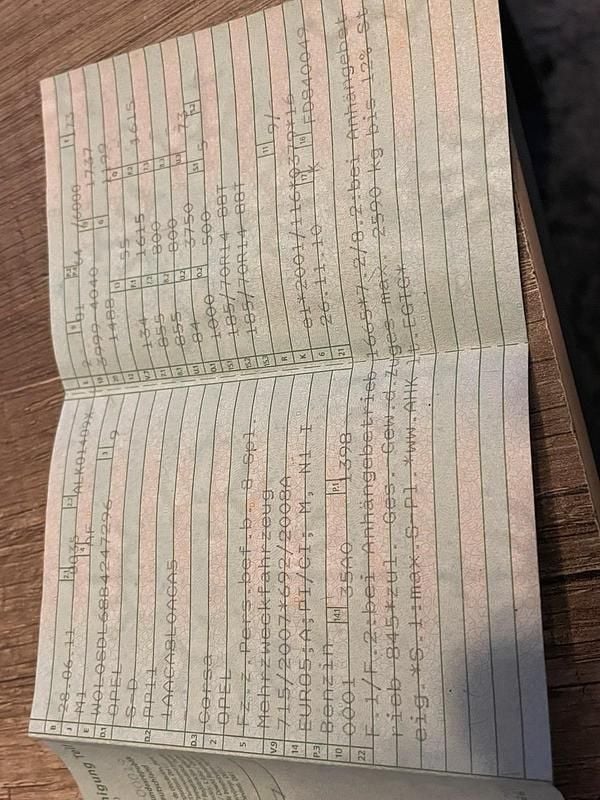 B 28.06.11 2.1 0035 2.2 ALK01409X
J M1 4 AF
E W0L0SDL68B4247296 3 9
D.1 OPEL
S-D
D.2 PP11
1AACABL0ACA5
D.3 Corsa
2 OPEL
5 Fz.z.Pers.bef.b. 8 Spl.
Mehrzweckfahrzeug
V.9 715/2007*692/2008A
14 EURO5;A; PI/CI; M, N1 I
P.3 Benzin
10 0001 14.1 35A0 P.1 1398
22 F.1/F.2:bei Anhängebetrieb 1665*7.2/8.2:bei Anhängebet
rieb 845*zul. Ges. Gew.d.Zuges max. 2590 kg bis 12% St
eig.*S.1:max.5 Pl.*ww.AHK lt.EGTG*
L 2 9 01 P.2 64 /6000 T 173
18 3999-4040 19 1737
20 1488 G 1199
12 13 55 Q
V.7 134 F.1 1615 F.2 1615
7.1 855 7.2 800 7.3
8.1 855 8.2 800 8.3
U.1 84 U.2 3750 U.3 73
O.1 1000 O.2 500 S.1 5 S.2
15.1 185/70R14 88T
15.2 185/70R14 88T
15.3
R 11 9/
K e1*2001/116*0379*19
6 26.11.10 17 K 16 FD840049
21